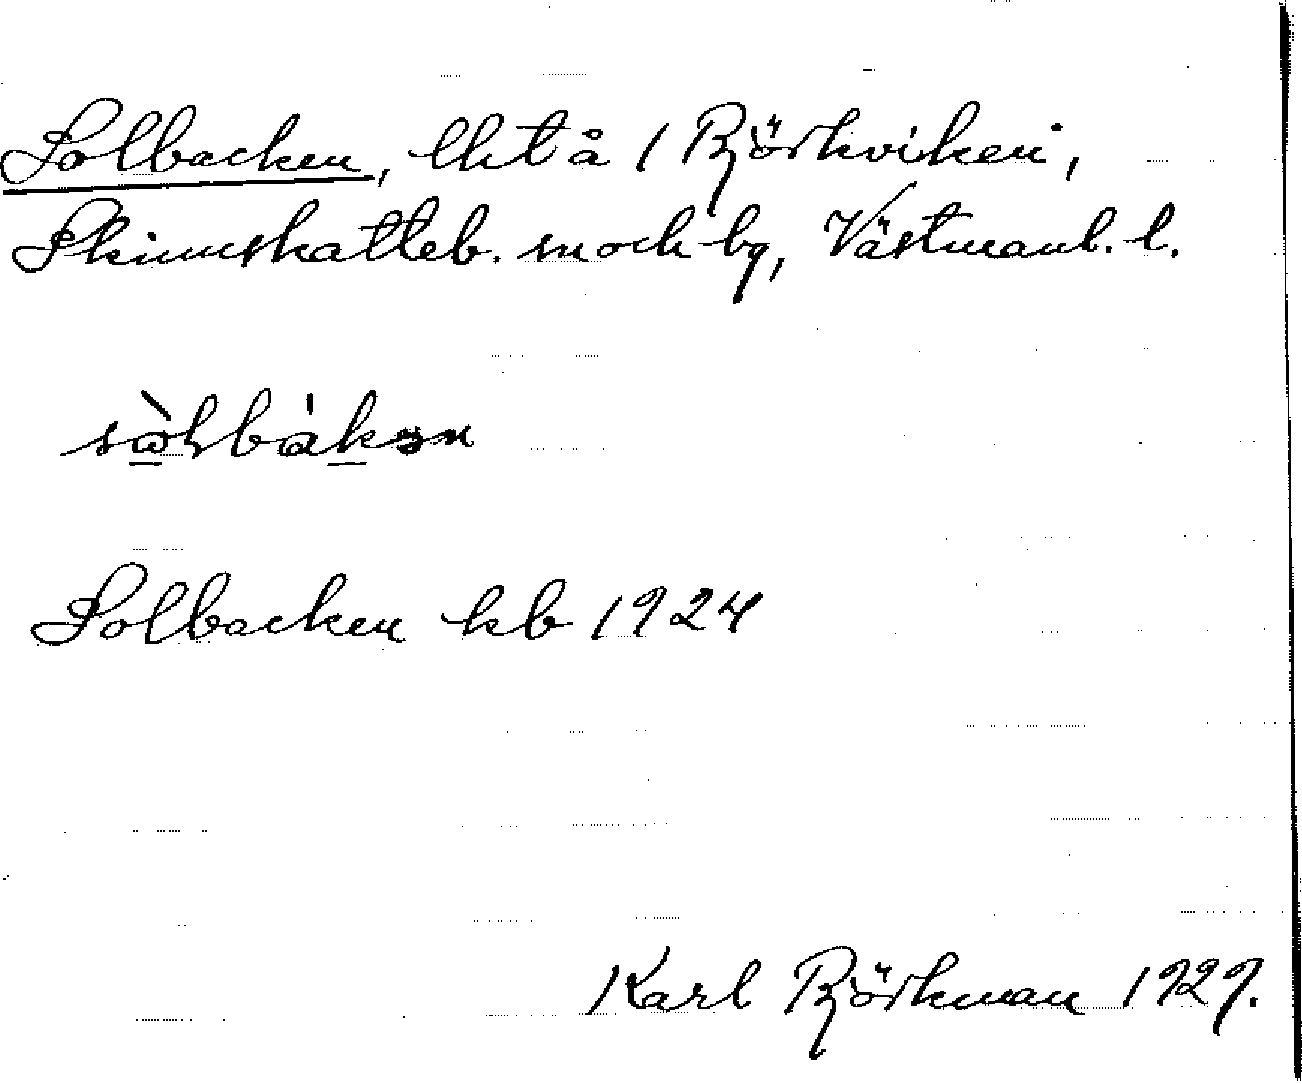 Solbacken, lht å 1 Björkviken,
Skinnskatteb. sn och bg, Västmanl. l.
sòlbàkən
Solbacken kb 1924
Karl Björkman 1929.